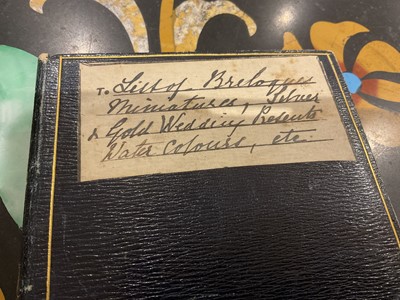 To List of Breloques
Miniatures, Silver
& Gold Wedding Presents
Water Colours, etc.